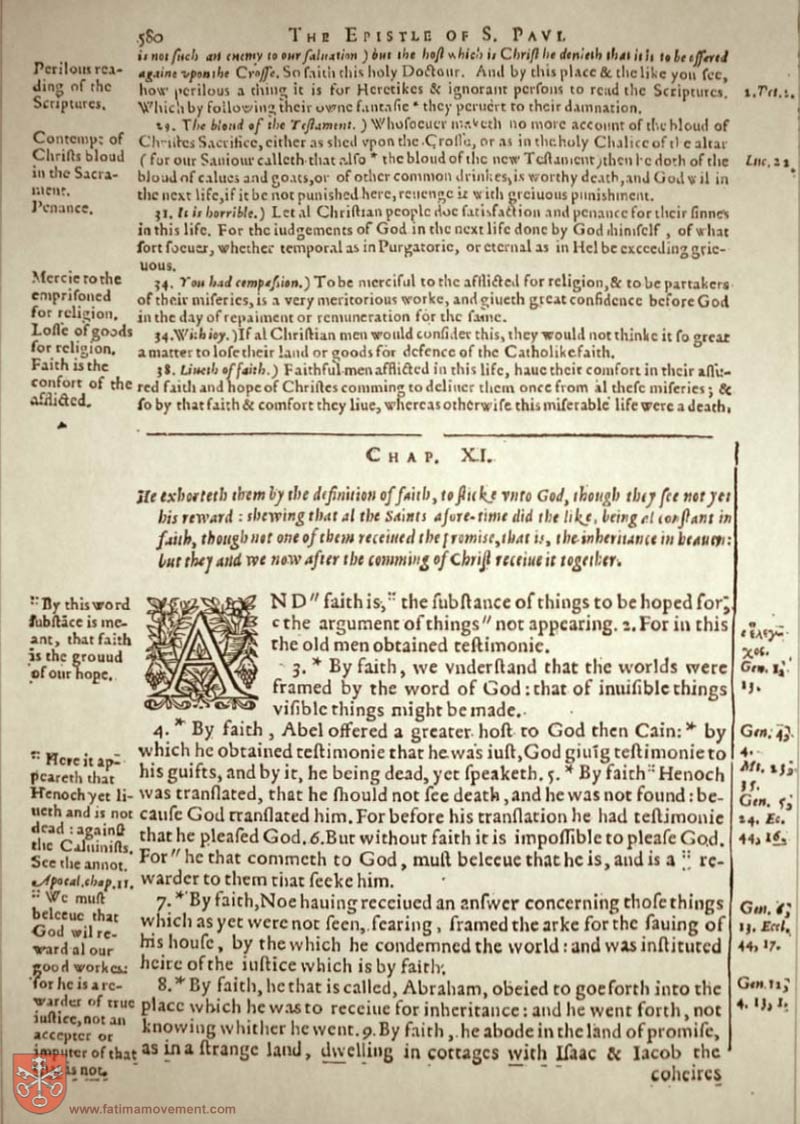 580 THE EPISTLE OF S. PAVL
is not ſuch an enemy to our ſaluation ) but the hoſt which is Chriſt he denieth that it is to be offered
againe vpon the Croſſe. So ſaith this holy Doctour. And by this place & the like you ſee,
how perilous a thing it is for Heretikes & ignorant perſons to read the Scriptures.
Which by following their owne fantaſie * they peruert to their damnation.
29. The bloud of the Teſtament. ) Whoſoeuer maketh no more account of the bloud of
Chriſtes Sacrifice, either as shed vpon the Croſſe, or as in the holy Chalice of the altar
( for our Sauiour calleth that alſo * the bloud of the new Teſtament) then he doth of the
bloud of calues and goats, or of other common drinkes, is worthy death, and God wil in
the next life, if it be not punished here, reuenge it with greiuous punishment.
31. It is horrible. ) Let al Chriſtian people doe ſatisfaction and penance for their ſinnes
in this life. For the iudgements of God in the next life done by God himſelf, of what
ſort ſoeuer, whether temporal as in Purgatorie, or eternal as in Hel be exceeding grie-
uous.
34. You had compaſſion. ) To be merciful to the afflicted for religion, & to be partakers
of their miſeries, is a very meritorious worke, and giueth great confidence before God
in the day of repaiment or remuneration for the ſame.
34. With ioy. ) If al Chriſtian men would conſider this, they would not thinke it ſo great
a matter to loſe their land or goods for defence of the Catholike faith.
38. Liueth of faith. ) Faithful men afflicted in this life, haue their comfort in their aſſu-
red faith and hope of Chriſtes comming to deliuer them once from al theſe miſeries ; &
ſo by that faith & comfort they liue, whereas otherwiſe this miſerable life were a death,
Perilous rea-
ding of the
Scriptures.
Contempt of
Chriſts bloud
in the Sacra-
ment.
Penance.
Mercie to the
empriſoned
for religion.
Loſſe of goods
for religion.
Faith is the
confort of the
afflicted.
2. Pet. 2.
Luc. 22.
CHAP. XI.
He exhorteth them by the definition of faith, to ſticke vnto God, though they ſee not yet
his reward : shewing that al the Saints afore-time did the like, being al conſtant in
faith, though not one of them receiued the promiſe, that is, the inheritance in heauen:
but they and we now after the comming of Chriſt receiue it together.
AND " faith is, :: the ſubſtance of things to be hoped for,
c the argument of things " not appearing. 2. For in this
the old men obtained teſtimonie.
3. * By faith, we vnderſtand that the worlds were
framed by the word of God : that of inuiſible things
viſible things might be made.
4. * By faith, Abel offered a greater hoſt to God then Cain: * by
which he obtained teſtimonie that he was iuſt, God giuīg teſtimonie to
his guifts, and by it, he being dead, yet ſpeaketh. 5. * By faith :: Henoch
was tranſlated, that he ſhould not ſee death, and he was not found : be-
cauſe God tranſlated him. For before his tranſlation he had teſtimonie
that he pleaſed God. 6. But without faith it is impoſſible to pleaſe God.
For " he that commeth to God, muſt beleeue that he is, and is a :: re-
warder to them that ſeeke him.
7. * By faith, Noe hauing receiued an anſwer concerning thoſe things
which as yet were not ſeen, fearing, framed the arke for the ſauing of
his houſe, by the which he condemned the world : and was inſtituted
heire of the iuſtice which is by faith.
8. * By faith, he that is called, Abraham, obeied to goe forth into the
place which he was to receiue for inheritance : and he went forth, not
knowing whither he went. 9. By faith, he abode in the land of promiſe,
as in a ſtrange land, dwelling in cottages with Iſaac & Iacob the
coheires
:: By this word
ſubſtāce is me-
ant, that faith
is the ground
of our hope.
:: Here it ap-
peareth that
Henoch yet li-
ueth and is not
dead : againſt
the Caluiniſts.
See the annot.
Apocal. chap. 11.
:: We muſt
beleeue that
God wil re-
ward al our
good workes:
for he is a re-
warder of true
iuſtice, not an
accepter or
imputer of that
is not.
Gen. 1,
13.
Gen. 4,
4.
Mt. 23,
35.
Gen. 5,
24. Ec.
44, 16.
Gen. 6,
13. Eccl.
44, 17.
Gen. 12,
4. 13, 1.
www.fatimamovement.com